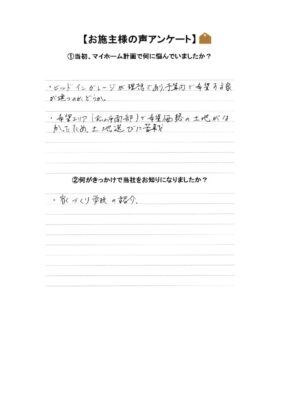 【お施主様の声アンケート】
①当初、マイホーム計画で何に悩んでいましたか？
・ビルドインガレージが理想であり、予算内で希望する家
が建つのかどうか。
・希望エリア(の平面部)で希望価格の土地がな
かったため、土地選びに苦戦
②何がきっかけで当社をお知りになりましたか？
・家づくり学校の紹介、